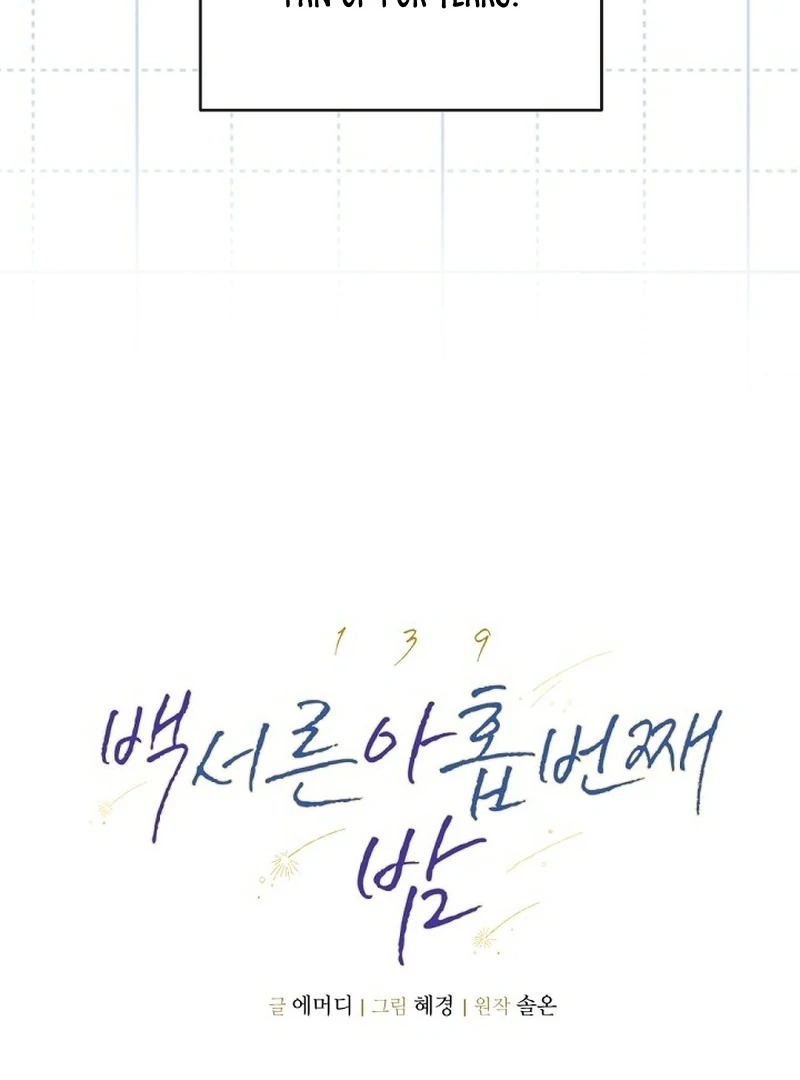 FAN OF FOR YEARS.
1 3 9
백서른아홉번째
밤
글 에머디 | 그림 혜경 | 원작 솔온